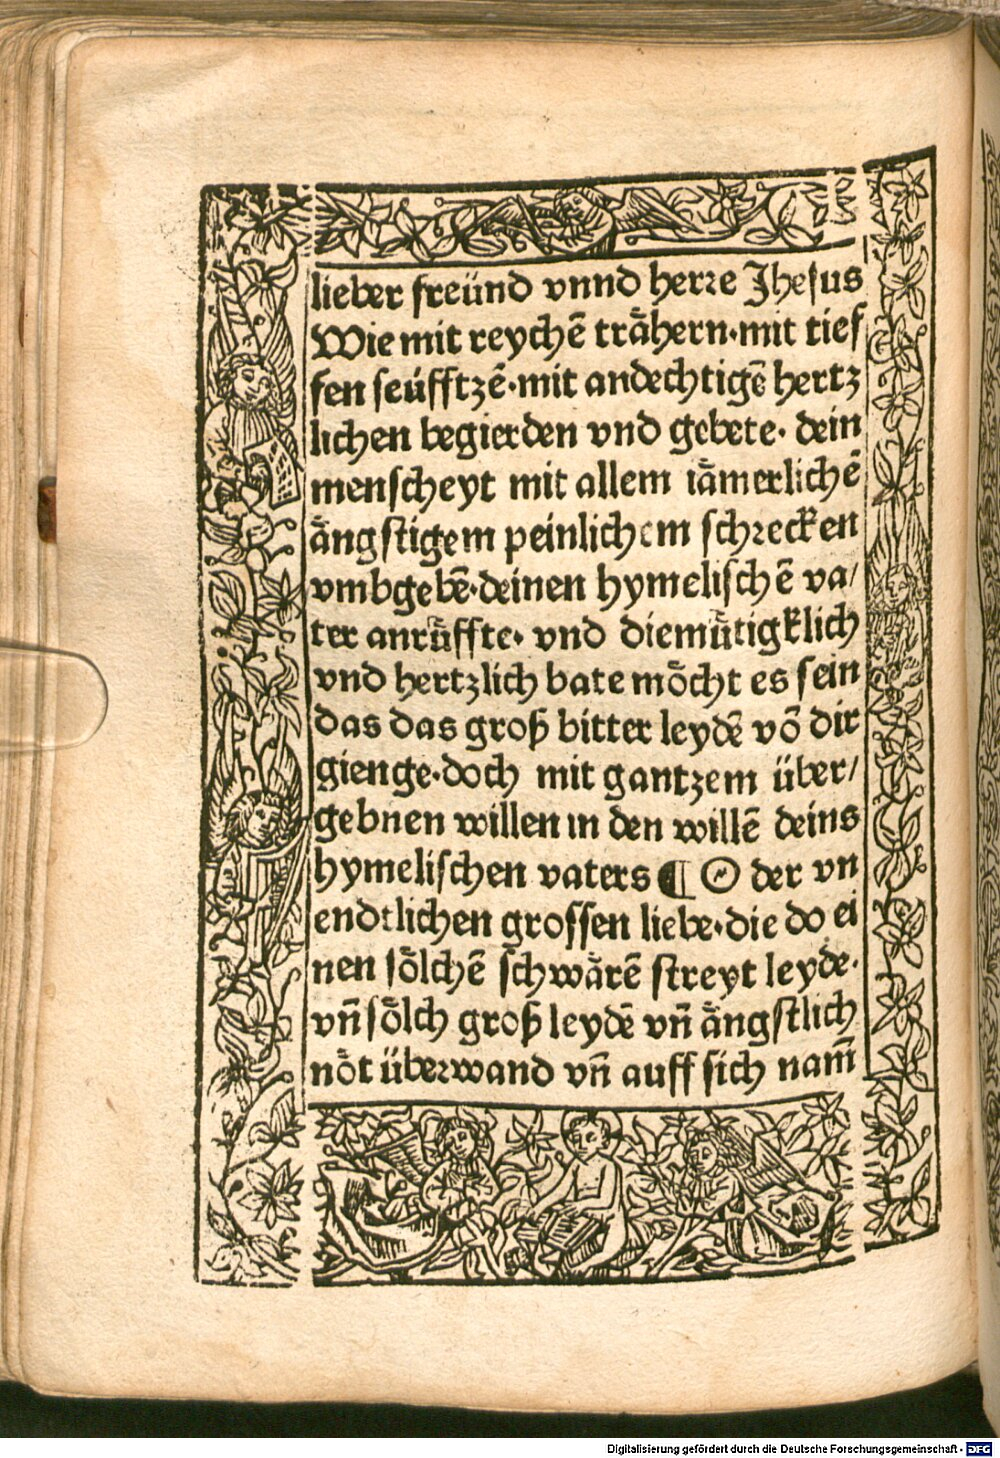 lieber freünd vnnd herꝛe Jheſus
Wie mit reychē traͤhern·mit tieſ
fen ſeúfftzē·mit andechtigē hertz
lichen begierden vnd gebete· dein
menſcheyt mit allem iaͤmerlichē
aͤngſtigem peinlichem ſchꝛecken
vmbgebē·deinen hymeliſchē va/
ter anruͤffte· vnd diemuͤtigklich
vnd hertzlich bate moͤcht es ſein
das das groß bitter leydē vō dir
gienge·doch mit gantzem über/
gebnen willen in den willē deins
hymeliſchen vaters ¶ O der vn
endtlichen groſſen liebe·die do ei
nen ſoͤlchē ſchwaͤrē ſtreyt leyde·
vn̄ ſoͤlch groß leydē vn̄ aͤngſtlich
noͤt überwand vn̄ auff ſich nam̄
Digitalisierung gefördert durch die Deutsche Forschungsgemeinschaft - DFG